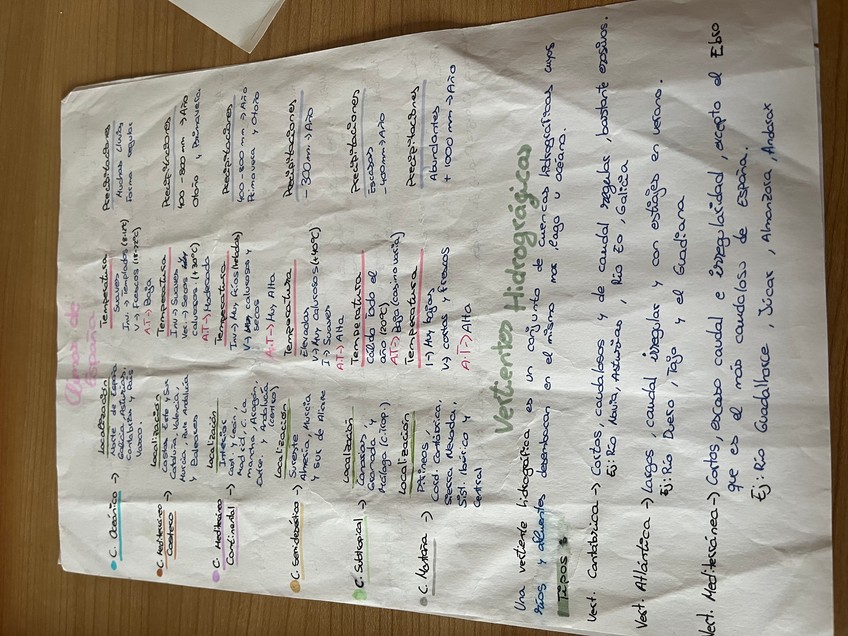 Climas de
España
• C. Oceánico →
Localización
Norte de España
Galicia, Asturias,
Cantabria y País
Vasco.
Temperatura
Suaves
Inv → Templados
V → Frescos
A.T → Baja
Precipitaciones
Muchas lluvias
Forma regular
• C. Mediterráneo
Costero →
Localización
Costas Este y Sur
Cataluña, Valencia,
Murcia, Andalucía
y Baleares
Temperatura
Inv → Suaves
Ver → Secos
calurosos
A.T → Moderada
Precipitaciones
400 - 800 mm → Año
Otoño y Primavera
• C. Mediterráneo
Continental →
Localización
Interior
Cast y León,
Madrid, C. La
Mancha, Aragón,
Extr y Andalucía
Temperatura
Inv → Muy frías (heladas)
V → Muy calurosos y
secos
A.T → Muy Alta
Precipitaciones
400 - 800 mm → Año
Primavera y Otoño
• C. Semidesértico →
Localización
Sureste
Almería, Murcia
y sur de Alicante
Temperatura
Elevadas
V → Muy calurosos (+40ºC)
I → Suaves
A.T → Alta
Precipitaciones
- 300 mm → Año
• C. Subtropical →
Localización
Canarias
Granada y
Málaga (C. Trop.)
Temperatura
Cálido todo el
año (20ºC)
A.T → Baja (casi no varía)
Precipitaciones
Escasas
- 400 mm → Año
• C. Montaña →
Localización
Pirineos,
Cord. Cantábrica,
Sierra Nevada,
Sist. Ibérico y
Central
Temperatura
I → Muy bajas
V → cortos y frescos
A.T → Alta
Precipitaciones
Abundantes
+ 1000 mm → Año
Vertientes Hidrográgicas
Una vertiente hidrográfica es un conjunto de cuencas hidrográficas cuyos
ríos y afluentes desembocan en el mismo mar, lago u océano.
Tipos:
Vert. Cantábrica → Cortos, caudalosos y de caudal regular, bastante erosivos.
Ej: Río Navia, Asturias, Río Eo, Galicia
Vert. Atlántica → Largos, caudal irregular y con estiajes en verano.
Ej: Río Duero, Tajo y el Guadiana
Vert. Mediterránea → Cortos, escaso caudal e irregularidad, excepto el Ebro
que es el más caudaloso de España.
Ej: Río Guadalhorce, Júcar, Almanzora, Andarax